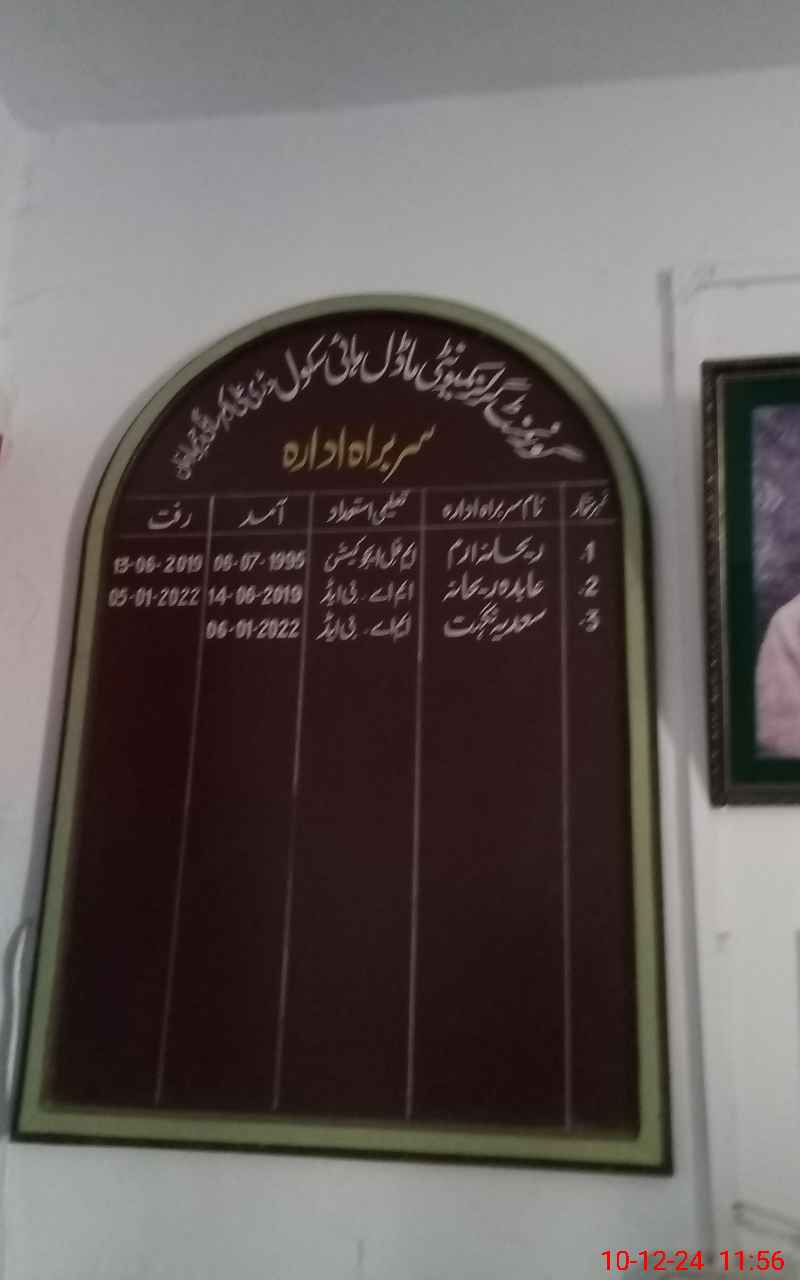 گورنمنٹ گرلز کمیونٹی ماڈل ہائی سکول
سربراہ ادارہ
نمبر شمار نام سربراہ ادارہ تعلیمی استعداد آمد رفت
1. ریحانہ ارم ایم فل ایجوکیشن 06-07-1995 13-06-2019
2. عابدہ ریحانہ ایم اے۔ بی ایڈ 14-06-2019 05-01-2022
3. سعدیہ نگہت ایم اے۔ بی ایڈ 06-01-2022
10-12-24 11:56